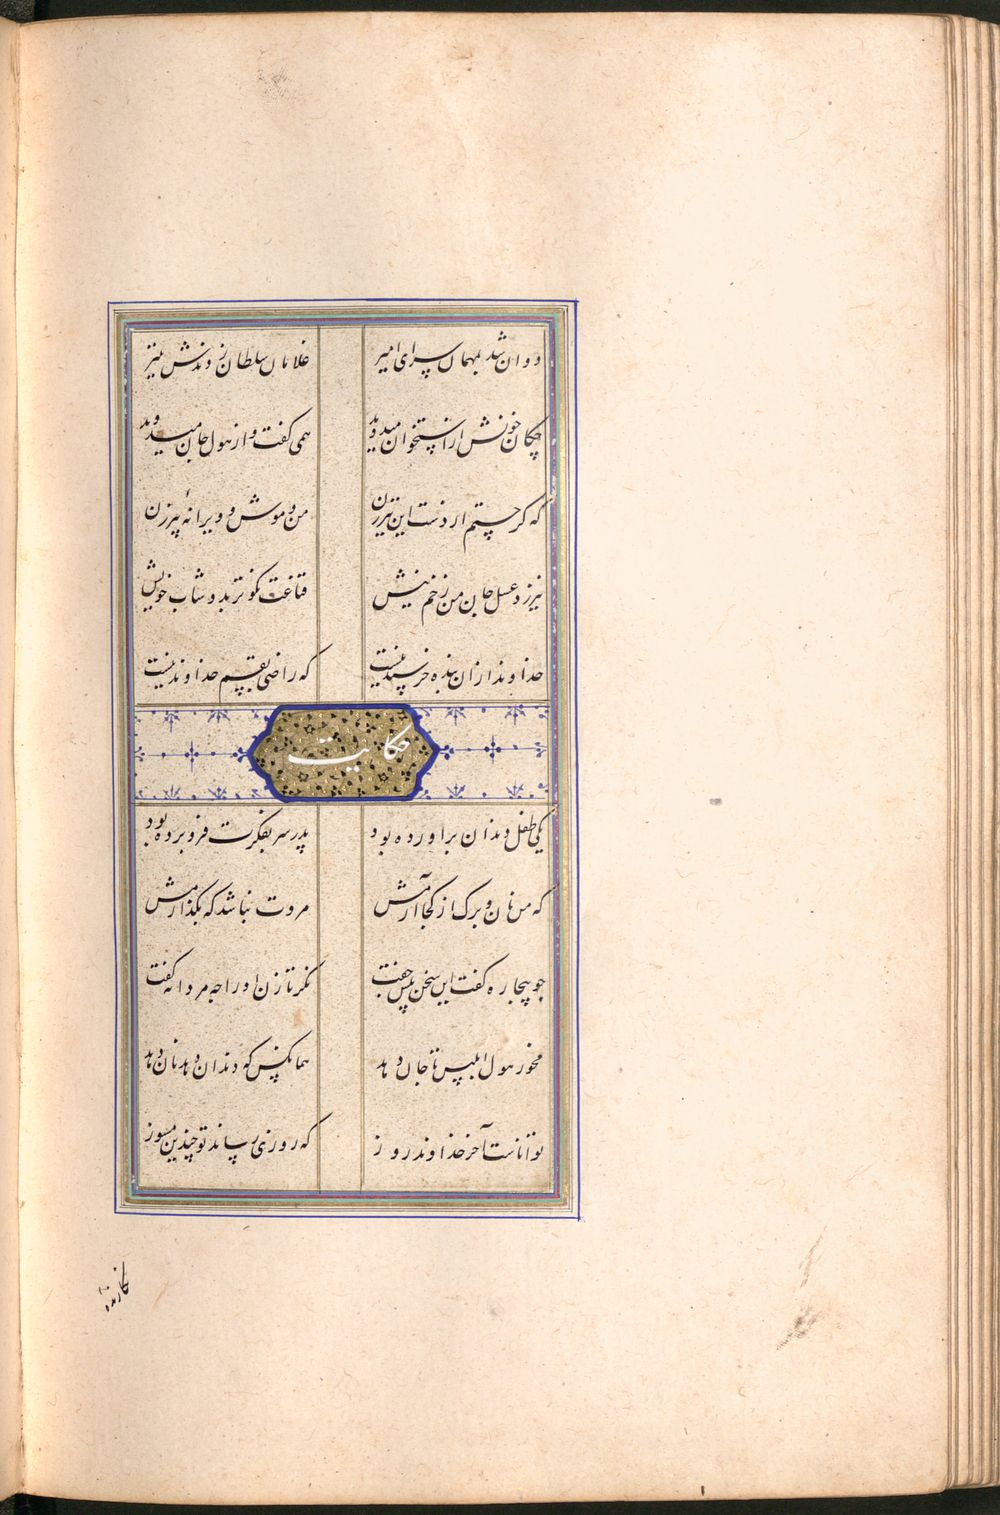 دوان شد بمهمان سرای امیر غلامان سلطان زدندش بتیر
چکان خونش از استخوان میدوید همی گفت و از هول جان میدوید
که گر جستم از دست این تیرزن من و موش و ویرانهٔ پیرزن
نیرزد عسل جان من زخم نیش قناعت نکوتر بدوشاب خویش
خداوند ازان بنده خرسند نیست که راضی بقسم خداوند نیست
حکایت
یکی طفل دندان برآورده بود پدر سر بفکرت فرو برده بود
که من نان و برک از کجا آرمش مروت نباشد که بکذارمش
چو بیچاره گفت این سخن پیش جفت نکر تا زن او را چه مردانه گفت
مخور هول ابلیس تا جان دهد همانکس که دندان دهد نان دهد
تواناست آخر خداوند روز که روزی رساند تو چندین مسوز
نگارنده